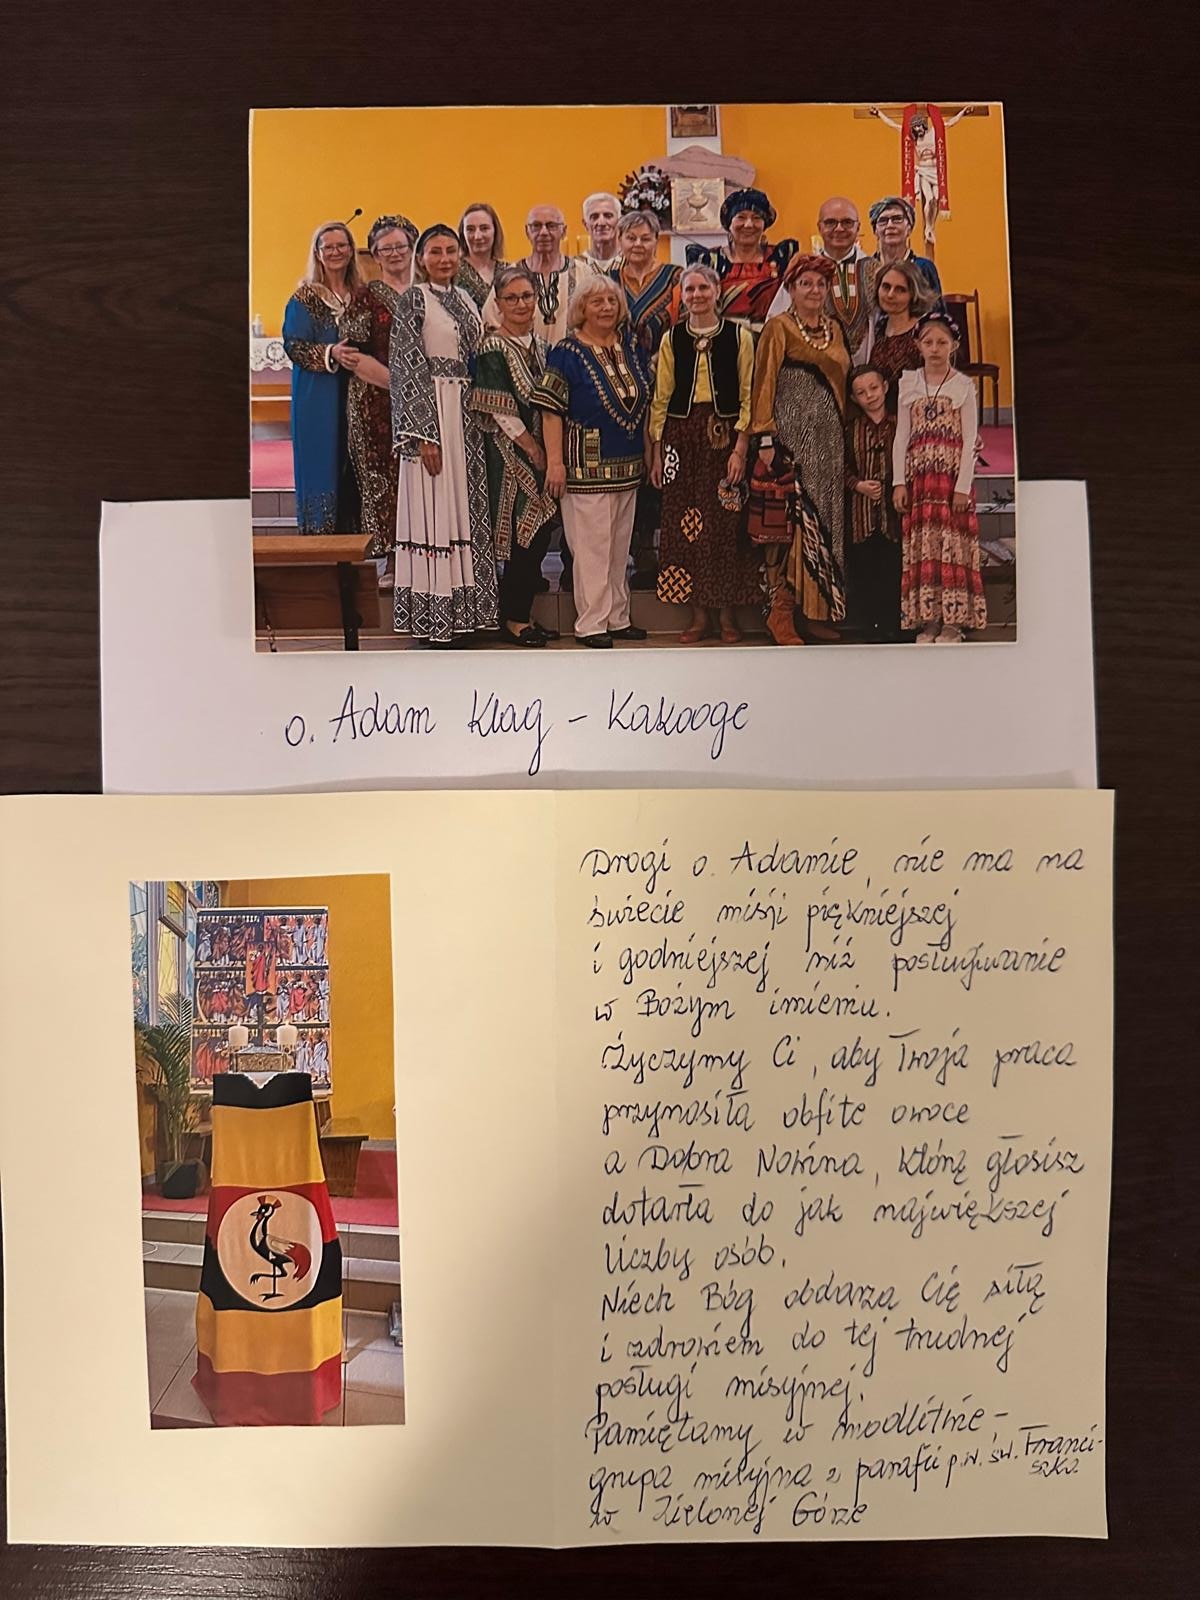 ALLELUJA
ALLELUJA
o. Adam Klag - Kakooge
Drogi o. Adamie, nie ma na
świecie misji piękniejszej
i godniejszej niż posługiwanie
w Bożym imieniu.
Życzymy Ci, aby Twoja praca
przynosiła obfite owoce
a Dobra Nowina, którą głosisz
dotarła do jak największej
liczby osób.
Niech Bóg obdarza Cię siłą
i zdrowiem do tej trudnej
posługi misyjnej.
Pamiętamy w modlitwie -
grupa misyjna z parafii p.w. św. Franci-
szka
w Zielonej Górze